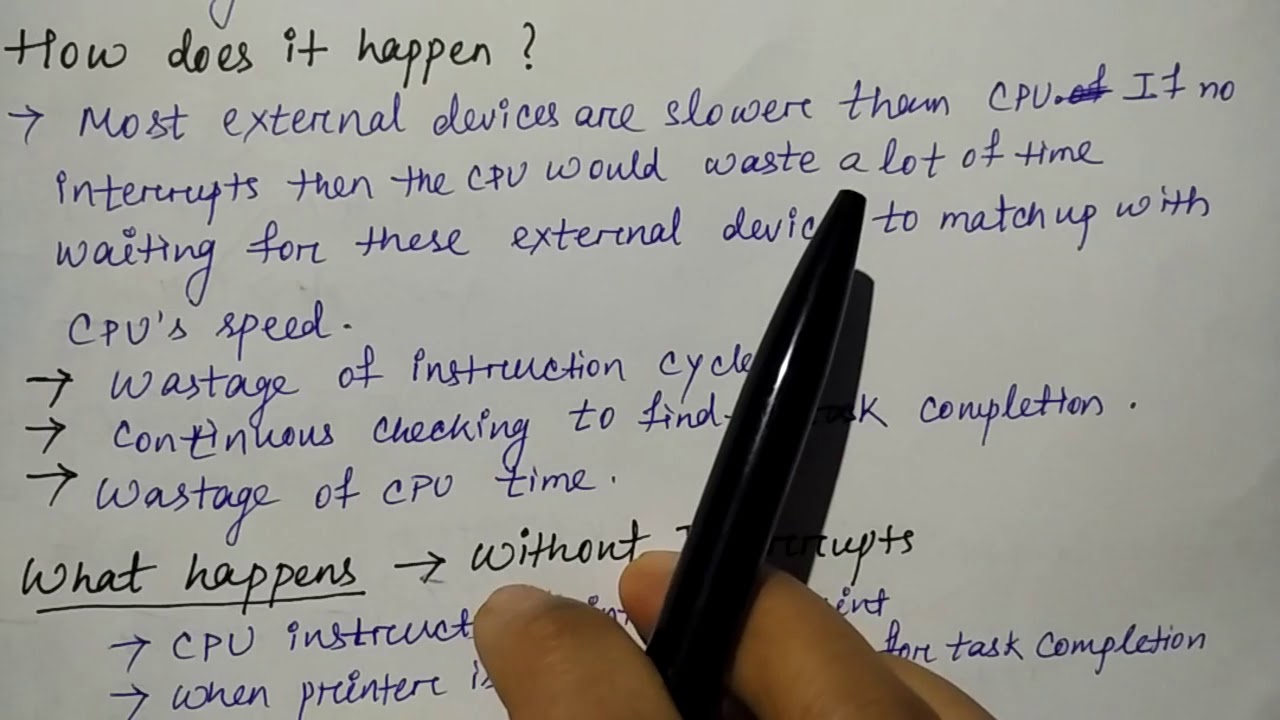 How does it happen ?
→ Most external devices are slower than CPU. If no
interrupts then the CPU would waste a lot of time
waiting for these external to match up with
CPU's speed.
→ Wastage of instruction
→ Continuous checking to find completion.
→ Wastage of CPU time.
What happens → Without
→ CPU for task completion
→ When printer